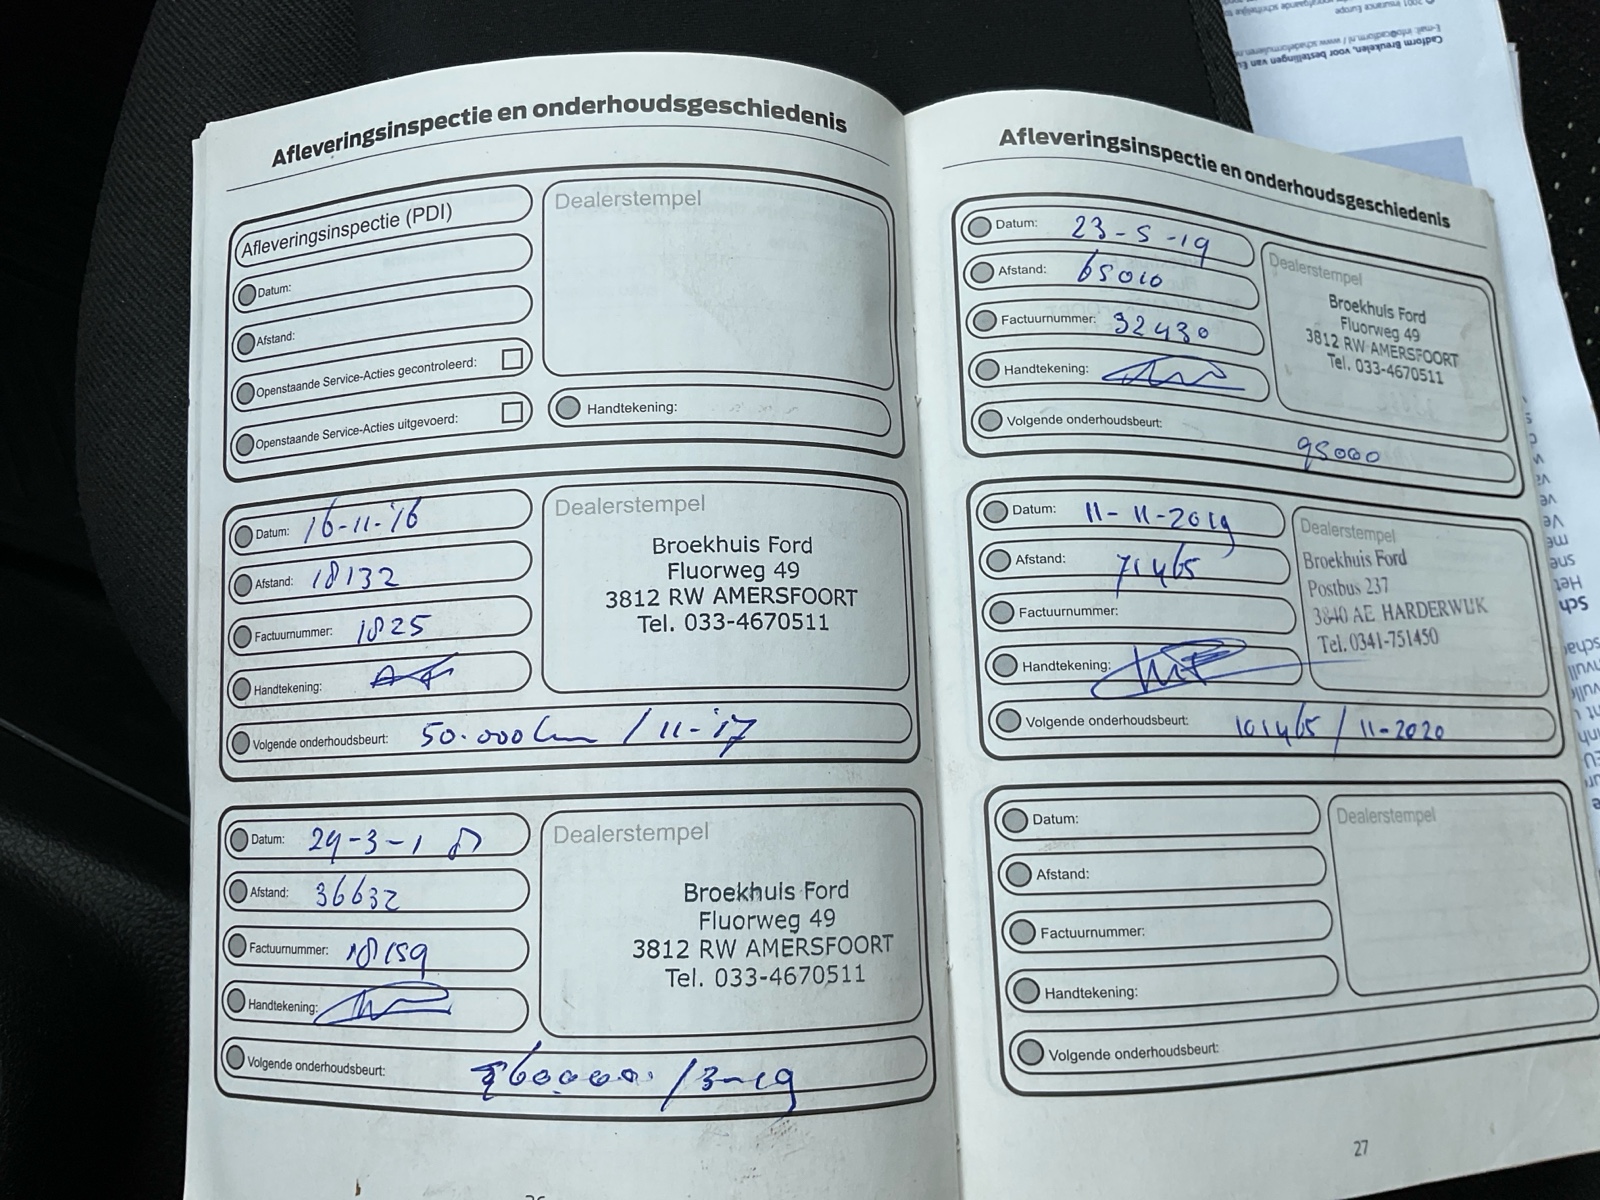 Afleveringsinspectie en onderhoudsgeschiedenis
Afleveringsinspectie (PDI)
Datum:
Afstand:
Openstaande Service-Acties gecontroleerd:
Openstaande Service-Acties uitgevoerd:
Dealerstempel
Handtekening:
Datum: 16-11-'16
Afstand: 18132
Factuurnummer: 1825
Handtekening:
Volgende onderhoudsbeurt: 50.000 km / 11-'17
Dealerstempel
Broekhuis Ford
Fluorweg 49
3812 RW AMERSFOORT
Tel. 033-4670511
Datum: 29-3-18
Afstand: 36632
Factuurnummer: 18159
Handtekening:
Volgende onderhoudsbeurt: 60.000 / 3-19
Dealerstempel
Broekhuis Ford
Fluorweg 49
3812 RW AMERSFOORT
Tel. 033-4670511
Afleveringsinspectie en onderhoudsgeschiedenis
Datum: 23-5-19
Afstand: 65010
Factuurnummer: 32430
Handtekening:
Volgende onderhoudsbeurt: 95000
Dealerstempel
Broekhuis Ford
Fluorweg 49
3812 RW AMERSFOORT
Tel. 033-4670511
Datum: 11-11-2019
Afstand: 71465
Factuurnummer:
Handtekening:
Volgende onderhoudsbeurt: 101465 / 11-2020
Dealerstempel
Broekhuis Ford
Postbus 237
3840 AE HARDERWIJK
Tel. 0341-751450
Datum:
Afstand:
Factuurnummer:
Handtekening:
Volgende onderhoudsbeurt:
Dealerstempel
27
Cadform Breukelen, voor bestellingen van
E-mail: info@cadform.nl / www.schadeformulieren.nl
© 2001 Insurance Europe